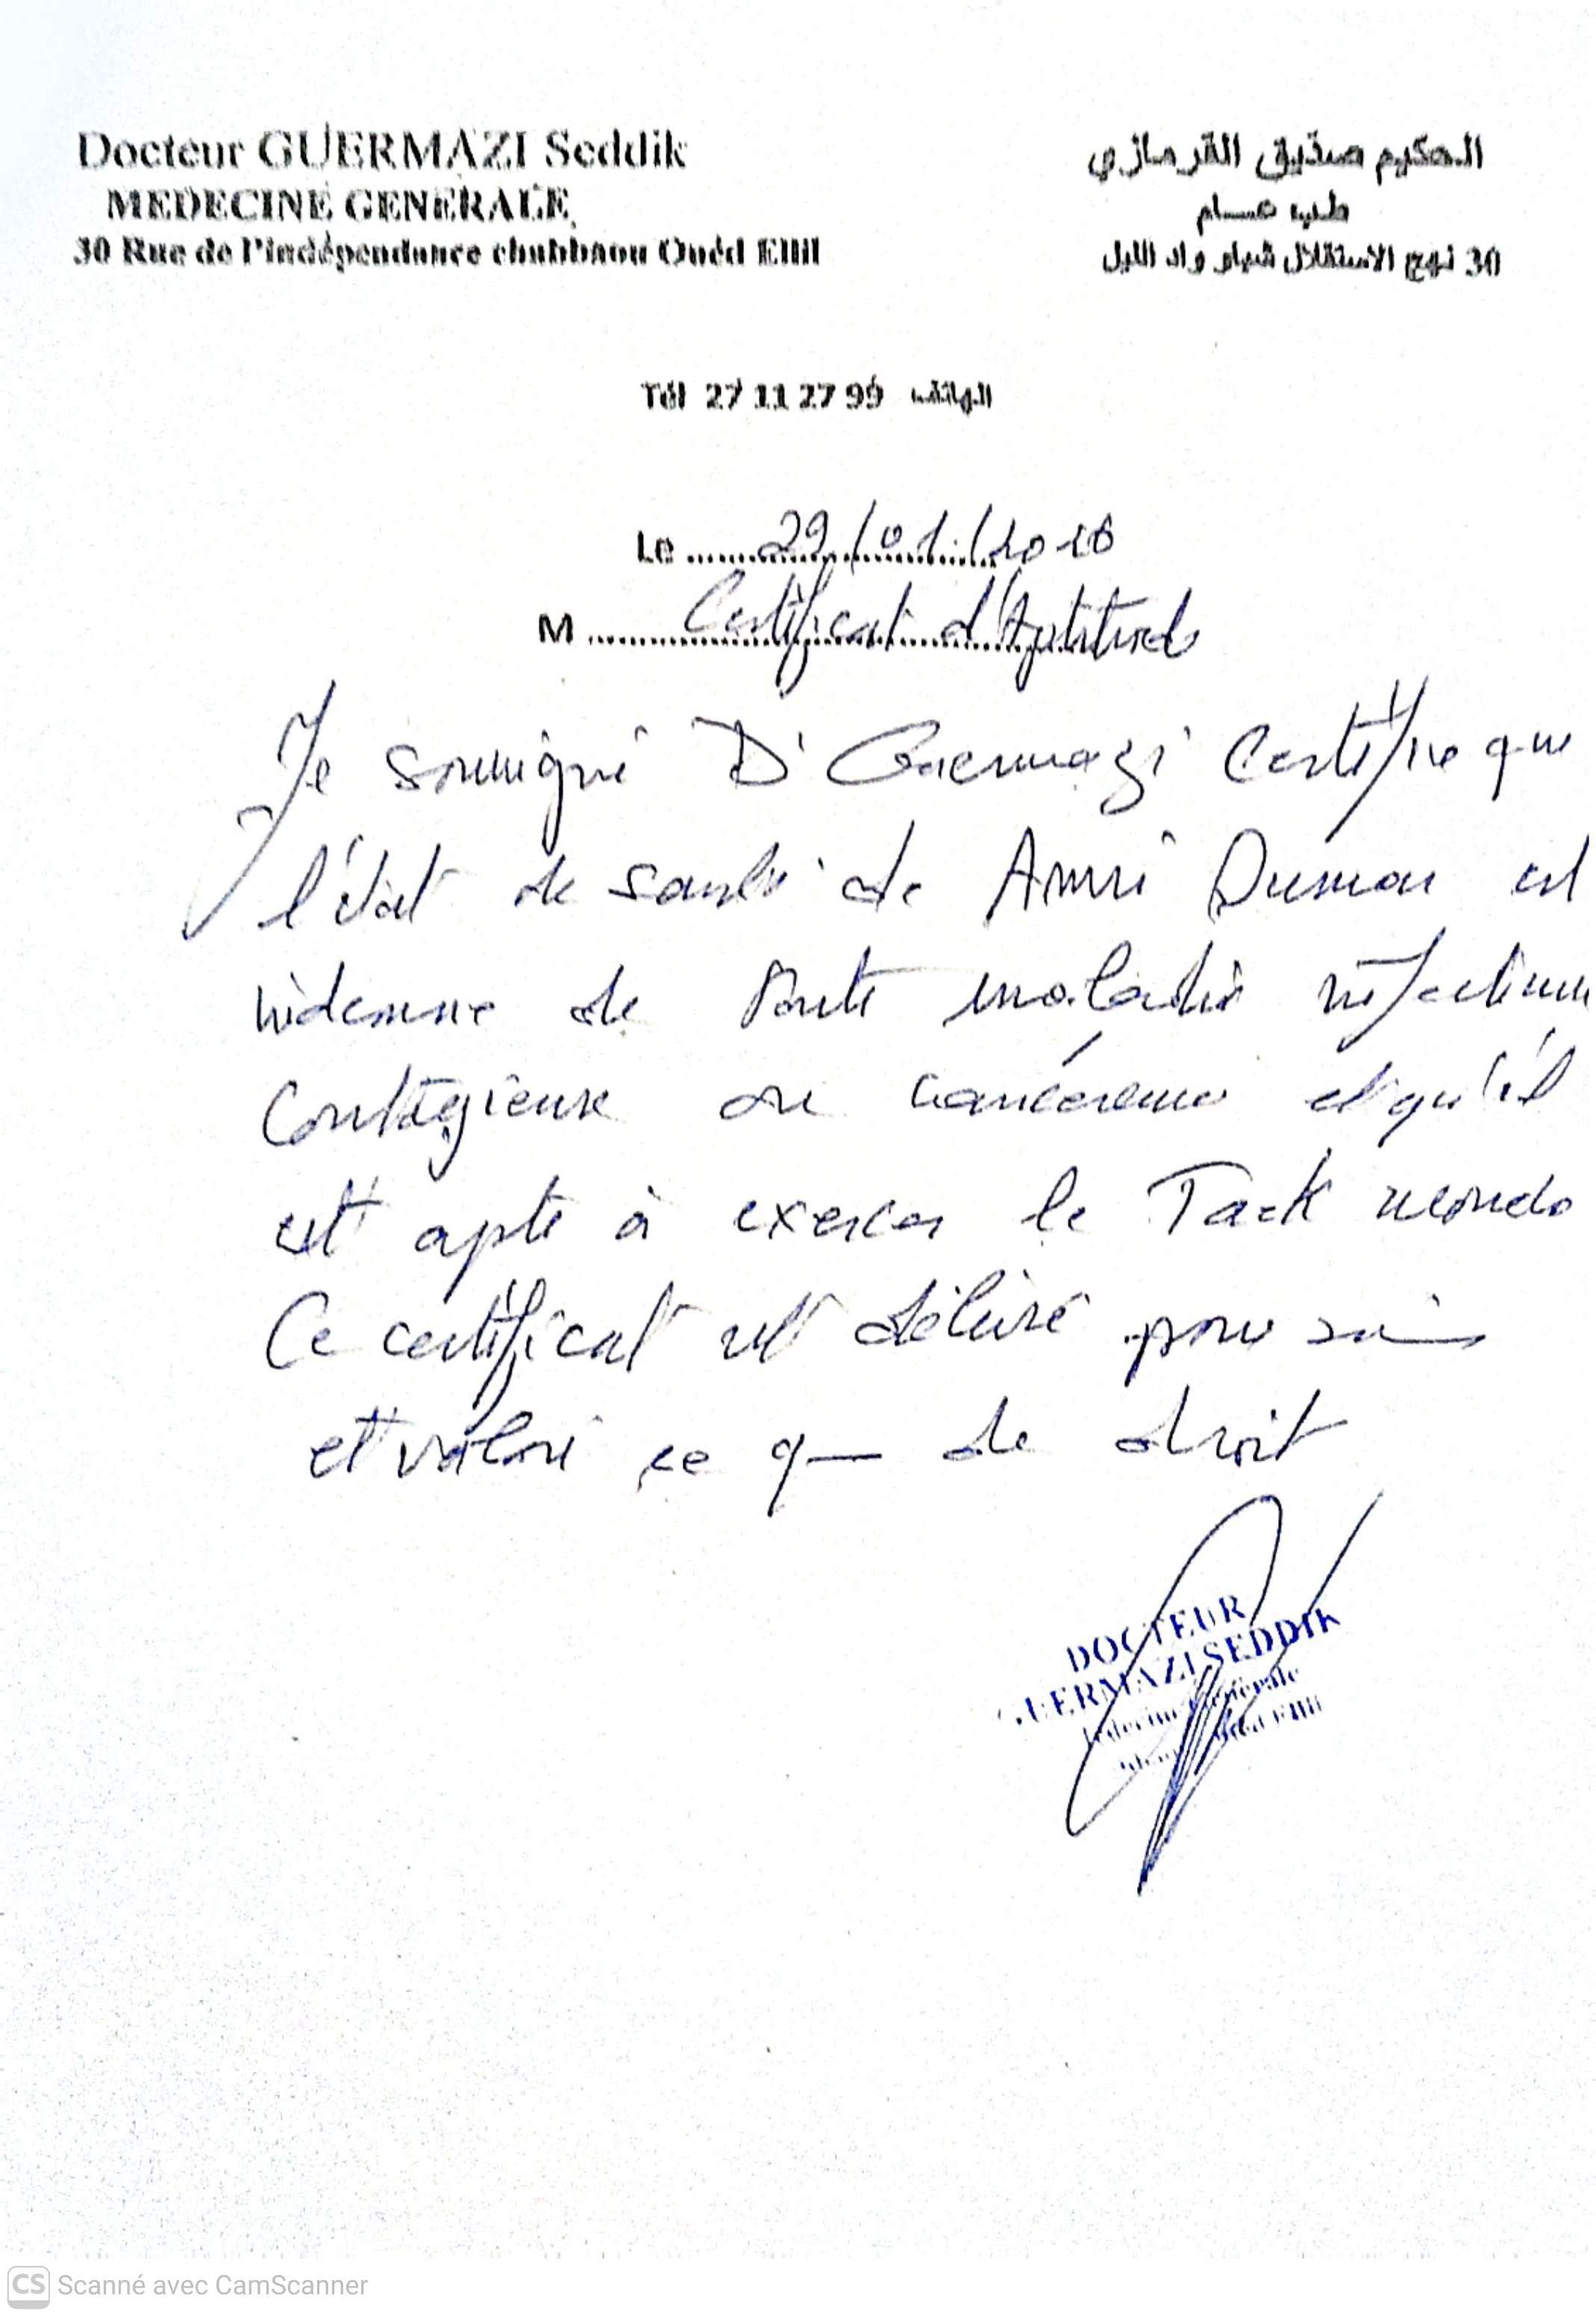 Docteur GUERMAZI Seddik
MEDECINE GENERALE
30 Rue de l'indépendance chabbaou Ouéd Ellil
الحكيم صديق القرمازي
طب عام
30 نهج الاستقلال شباو واد الليل
Tél 27 11 27 99 الهاتف
Le 29/01/2026
M Certificat d'Aptitude
Je soussigné Dr Guermazi Certifie que
l'état de santé de Amri Oumar est
indemne de toute maladie infectieuse
Contagieuse ou cancéreuse et qu'il
est apte à exercer le Taek wondo
Ce certificat est délivré pour servir
et valoir ce que de droit
DOCTEUR
GUERMAZI SEDDIK
Médecine Générale
Oued Ellil
CS Scanné avec CamScanner